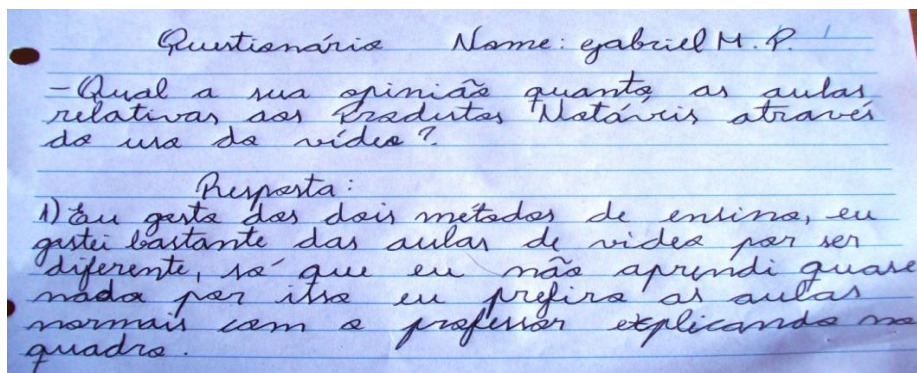 Questionário Nome: gabriel M. P.
-Qual a sua opinião quanto as aulas
relativas aos Produtos Notáveis através
do uso do vídeo?
Resposta:
1) Eu gosto dos dois métodos de ensino, eu
gostei bastante das aulas de video por ser
diferente, só que eu não aprendi quase
nada por isso eu prefiro as aulas
normais com o professor explicando no
quadro.